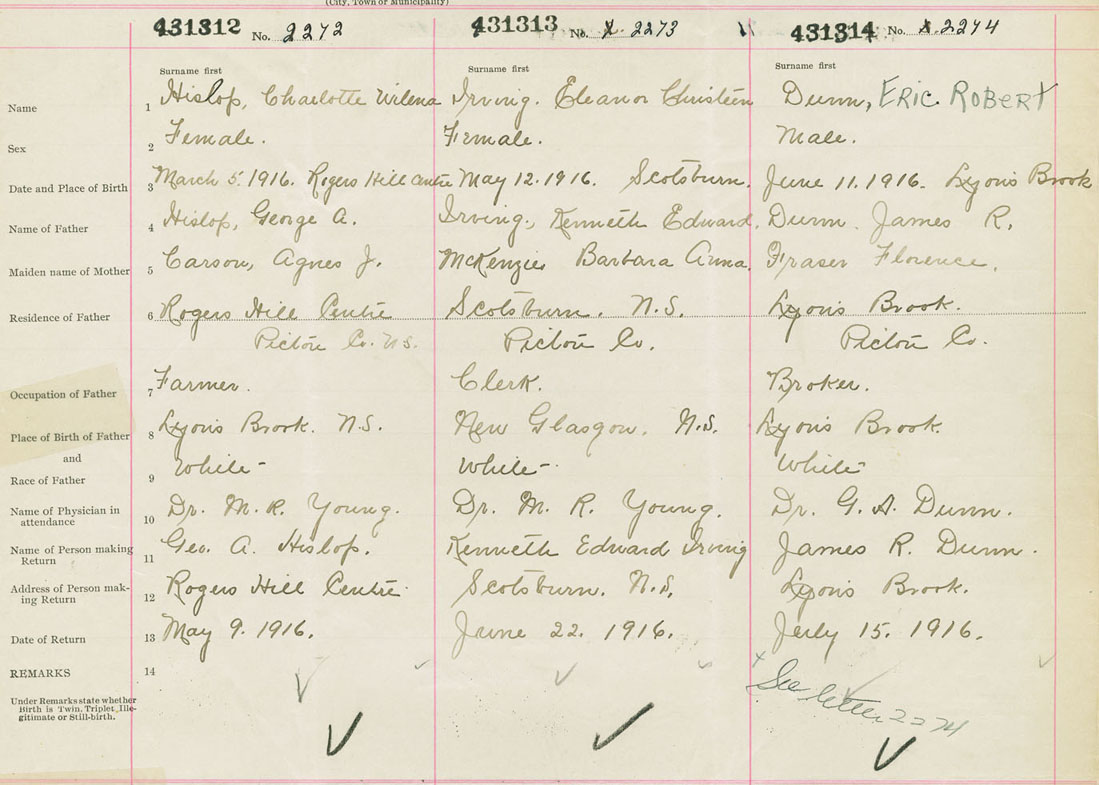 (City, Town or Municipality)
431312 No. 2272 431313 No. 2273 431314 No. 2274
Surname first Surname first Surname first
Name 1 Hislop, Charlotte Wilena Irving. Eleanor Christeen Dunn, ERIC. ROBERT
Sex 2 Female. Female. Male.
Date and Place of Birth 3 March 5. 1916. Rogers Hill Centre May 12. 1916. Scotsburn. June 11. 1916. Lyons Brook
Name of Father 4 Hislop, George A. Irving, Kenneth Edward. Dunn. James R.
Maiden name of Mother 5 Carson, Agnes J. McKenzie Barbara Anna. Fraser Florence.
Residence of Father 6 Rogers Hill Centre Scotsburn. N.S. Lyons Brook.
Pictou Co. N.S. Pictou Co. Pictou Co.
Occupation of Father 7 Farmer. Clerk. Broker.
Place of Birth of Father 8 Lyons Brook. N.S. New Glasgow. N.S. Lyons Brook.
and
Race of Father 9 White White White
Name of Physician in attendance 10 Dr. M. R. Young. Dr. M. R. Young. Dr. G. A. Dunn.
Name of Person making Return 11 Geo. A. Hislop. Kenneth Edward Irving James R. Dunn.
Address of Person making Return 12 Rogers Hill Centre Scotsburn. N.S. Lyons Brook.
Date of Return 13 May 9. 1916. June 22. 1916. July 15. 1916.
REMARKS 14
See letter 2274
Under Remarks state whether
Birth is Twin, Triplet, Ille-
gitimate or Still-birth.